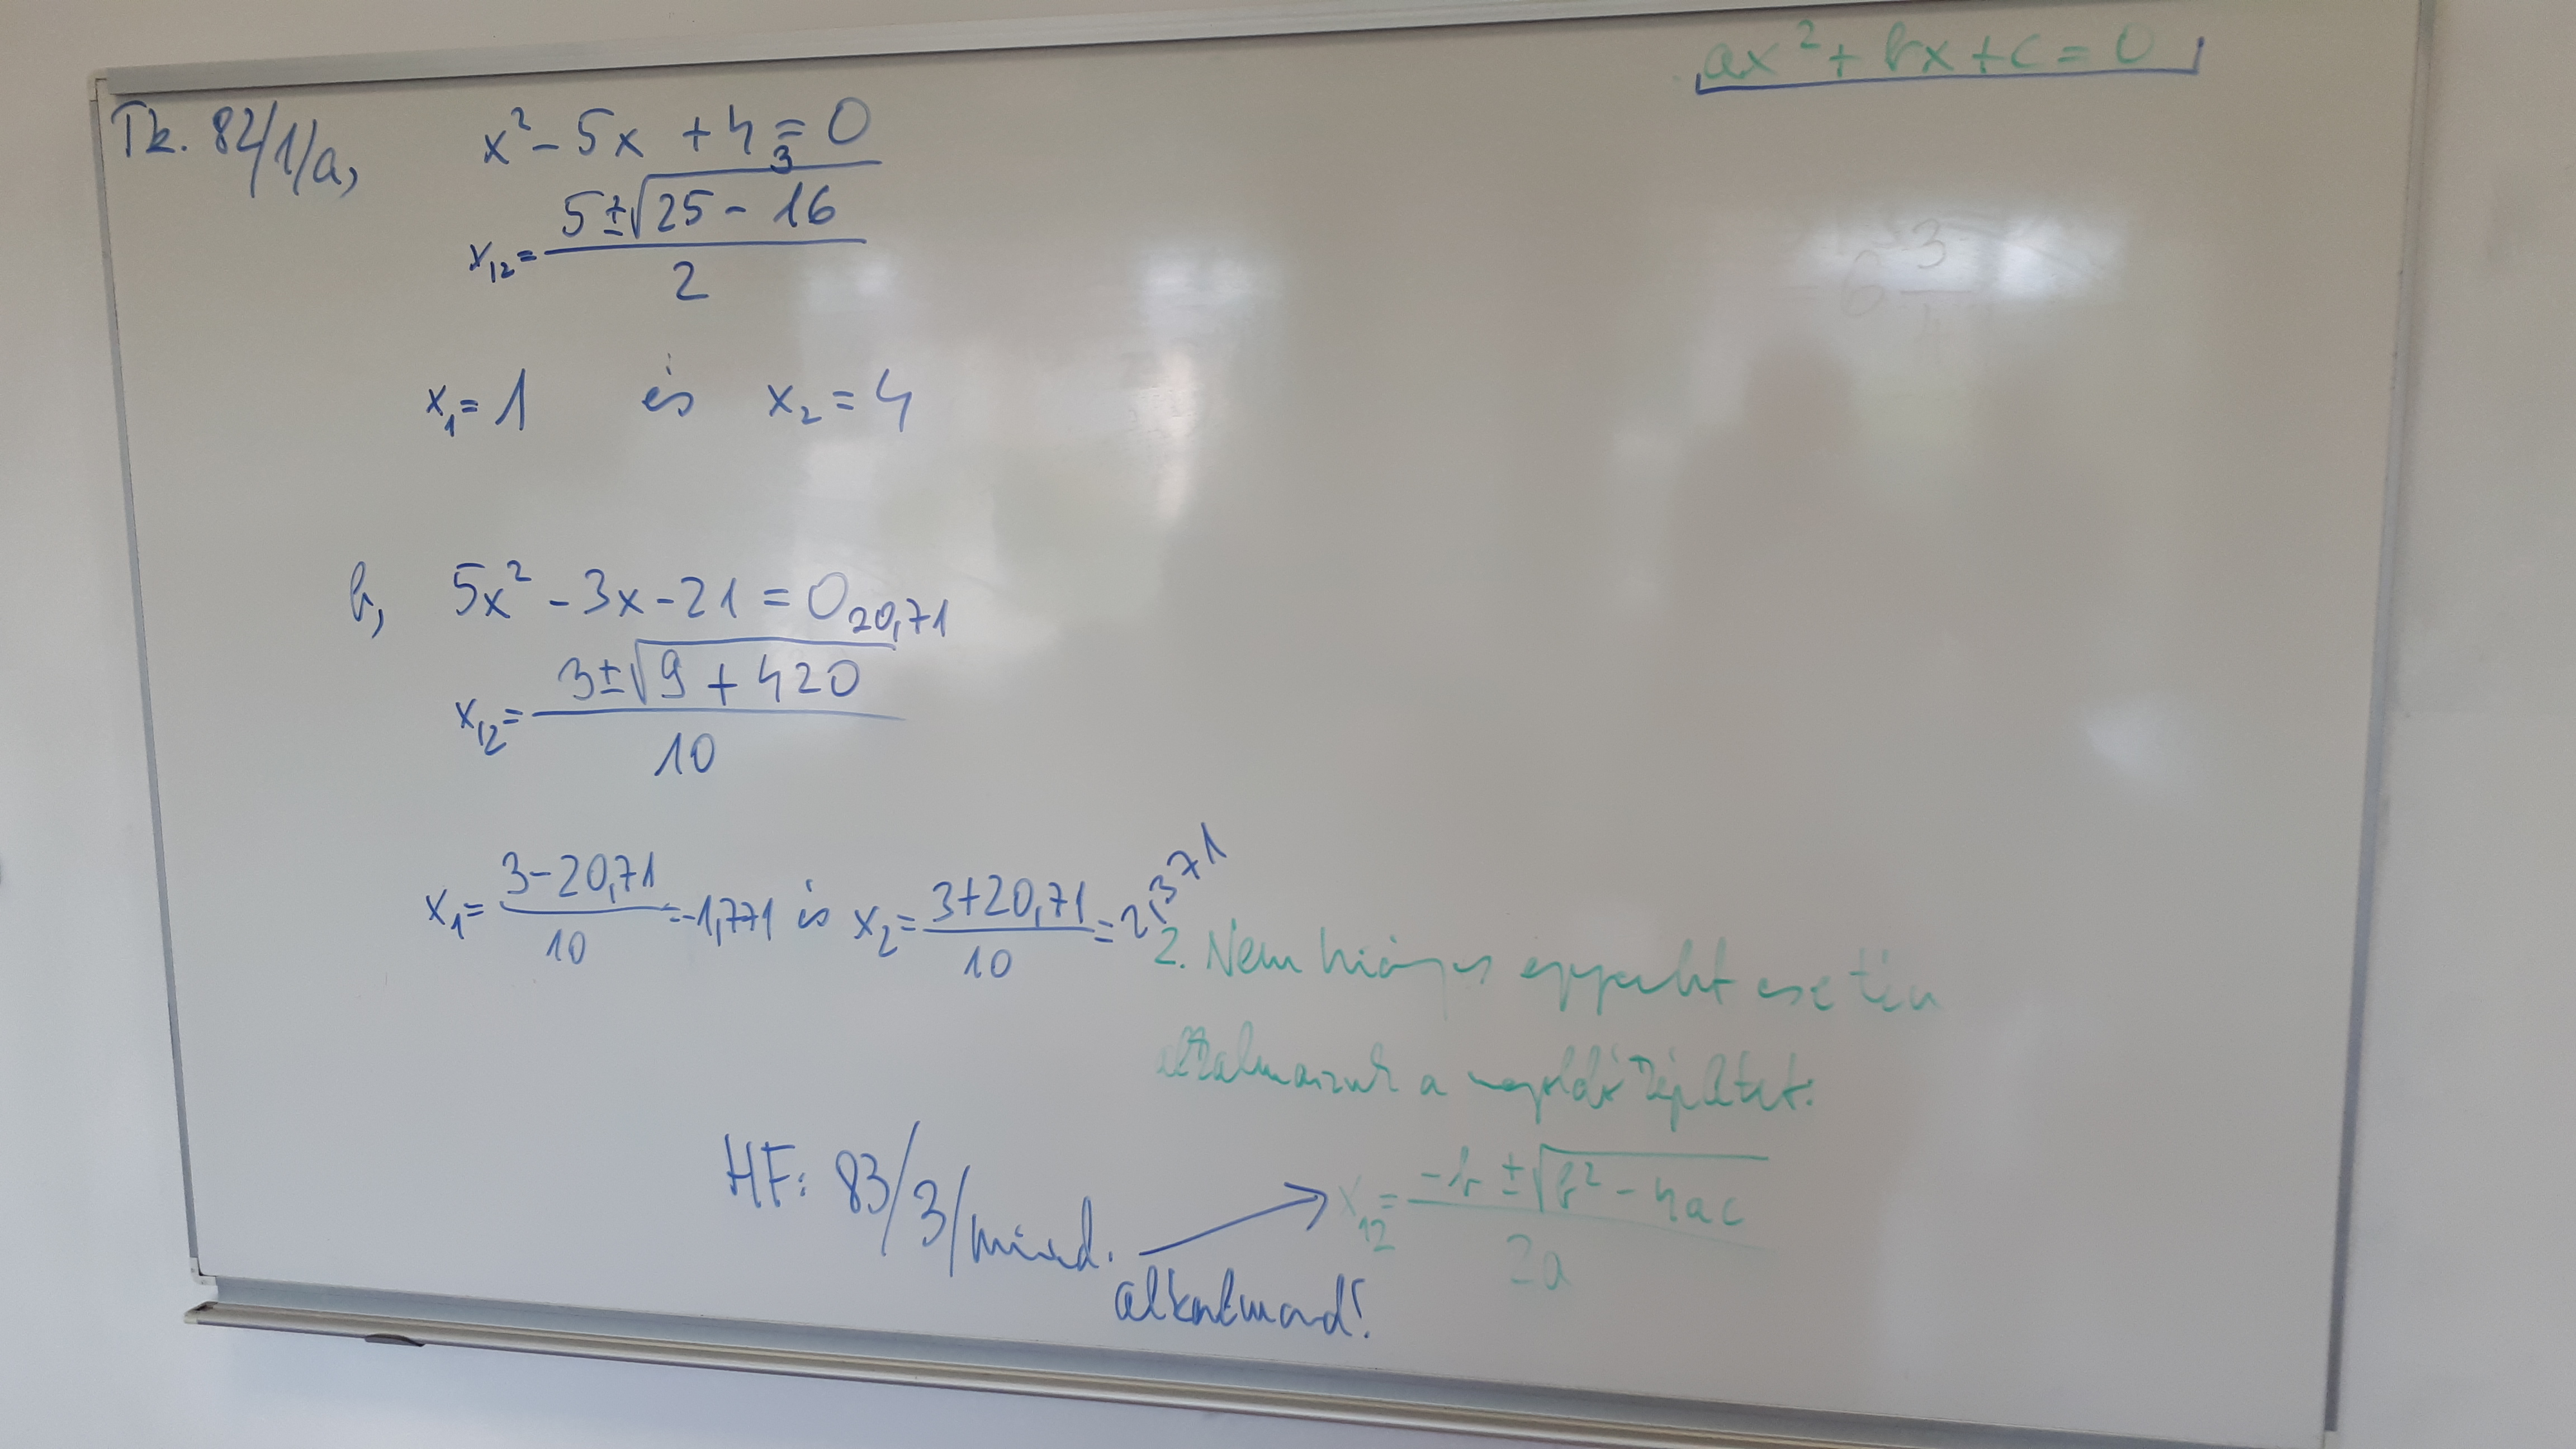 ax² + bx + c = 0
Tk. 82/1/a, x² - 5x + 4 = 0
3
x₁₂ = (5 ± √(25 - 16)) / 2
x₁ = 1 és x₂ = 4
b, 5x² - 3x - 21 = 0
20,71
x₁₂ = (3 ± √(9 + 420)) / 10
x₁ = (3 - 20,71) / 10 = -1,771 és x₂ = (3 + 20,71) / 10 = 2,371
2. Nem hiányos egyenlet esetén
alkalmazzuk a megoldóképletet:
x₁₂ = (-b ± √(b² - 4ac)) / 2a
HF: 83/3/mind.
alkalmazd!